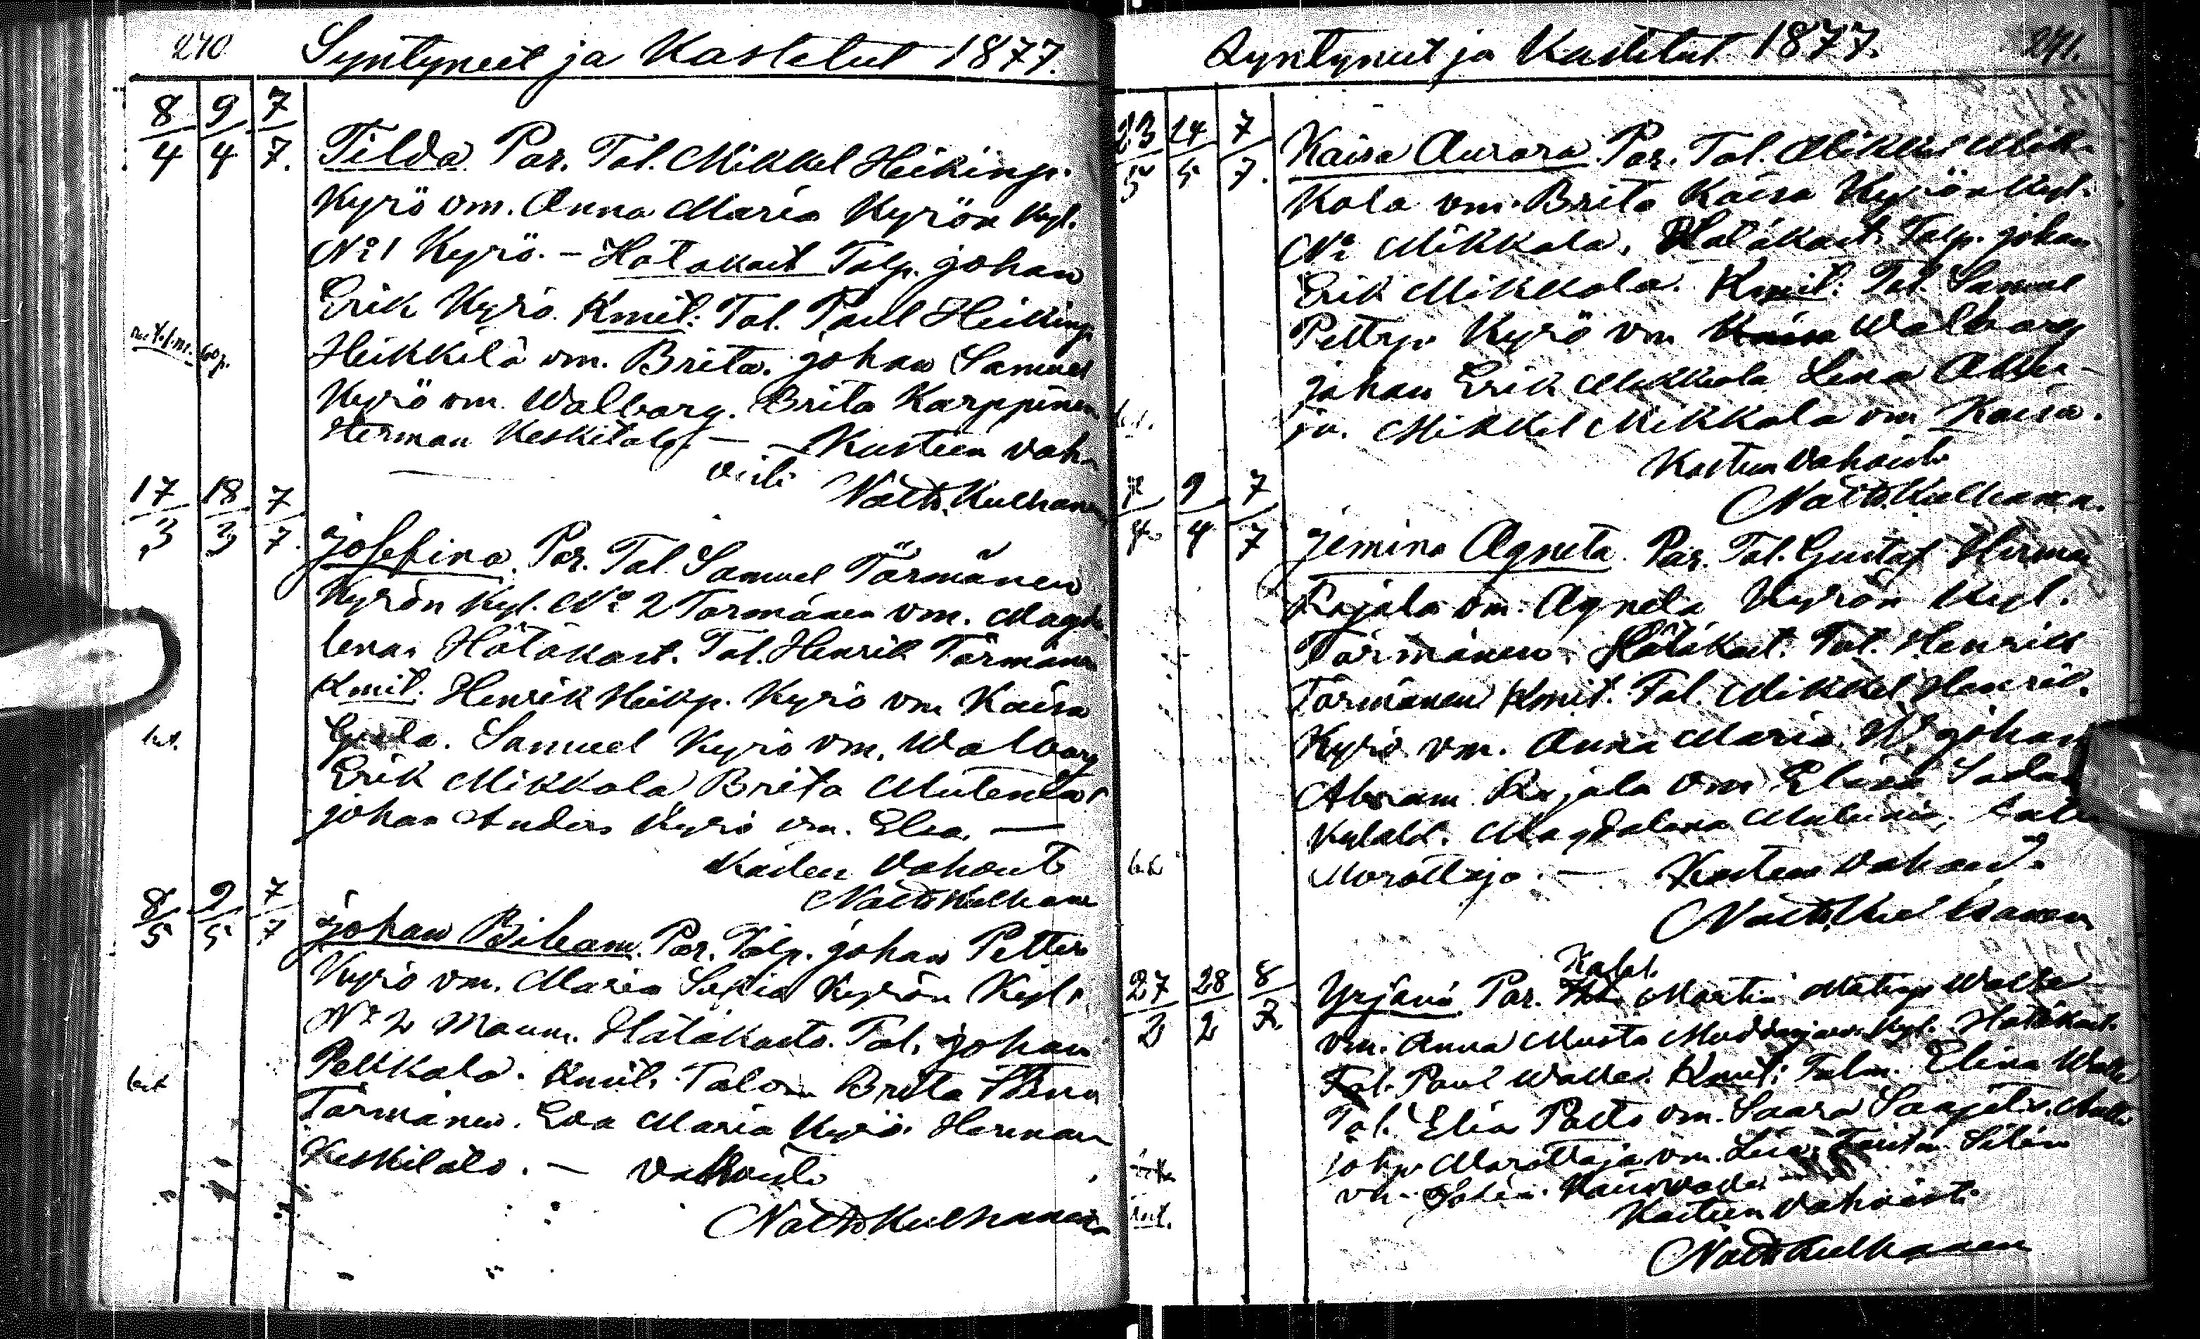 270. Syntyneet ja Kastetut 1877.
8/4 9/4 7/7. Tilda. Par. Tal. Mikkel Heikinp.
Kyrö vm. Anna Maria Kyrön Kyl.
No 1 Kyrö. - Hätäkast. Talp. Johan
Erik Kyrö. Kmit: Tal. Paul Heikinp.
Heikkilä vm. Brita. Johan Samuel
Kyrö vm. Walborg. Brita Karppinen
Herman Keskitalo — Kasteen vah-
visti
Nath. Kulhanen
17/3 18/3 7/7. Josefina. Par. Tal. Samuel Törmänen
Kyrön Kyl. No 2 Törmänen vm. Magda
lena. Hätäkast. Tal. Henrik Törmänen
Kmit. Henrik Heikp. Kyrö vm Kaisa
Greta. Samuel Kyrö vm. Walborg
Erik Mikkola Brita
Johan Anders Kyrö vm. Elsa. —
Kasten vahvisti
Nath Kulhanen
8/5 9/5 7/7 Johan Bileam. Par. Talp. Johan Petter
Kyrö vm. Maria Sofia Kyrön Kyl.
No 2 Hätäkaste. Tal. Johan
Pelkkala. Kmit. Talon Brita Stina
Törmänen. Eva Maria Kyrö. Herman
Keskitalo. — vahvisti
Nath. Kulhanen
Syntyneet ja Kastetut 1877. 271.
23/5 24/5 7/7. Kaisa Aurora. Par. Tal. Mikkel Mik-
kola vm. Brita Kaisa Kyrön Kyl.
No Mikkola. Hätäkast. Talp. Johan
Erik Mikkola. Kmit: Tal. Samuel
Petterp. Kyrö vm Walborg
Johan Erik Mikkola Lena
Mikkel Mikkola vm Kaisa.
Kasteen vahvisti
Nath. Kulhanen.
7/4 9/4 7/7 Jemina Agneta. Par. Tal. Gustaf Herman
Rajala vm. Agneta Kyrön Kyl.
Törmänen. Hätäkast. Tal. Henrik
Törmänen Kmit. Tal. Mikkel Henrik.
Kyrö vm. Anna Maria. Johan
Abram Rajala vm Elina
Magdalena
Morottaja. — Kasteen vahvisti
Nath. Kulhanen
27/2 28/2 8/7. Yrjänä. Par. Kalst. Martin Matinp Walle
vm. Anna Musta Muddusjärv. Kyl. Hätäkast.
Tal. Paul Walle. Kmit: Talm. Elina Walle
Tal. Elia Palto vm. Saara
Johp. Morottaja vm.
Kasteen vahvisti
Nath Kulhanen